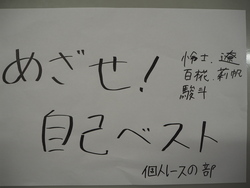 めざせ!
怜士、遼
百椛、莉帆
駿斗
自己ベスト
個人レースの部